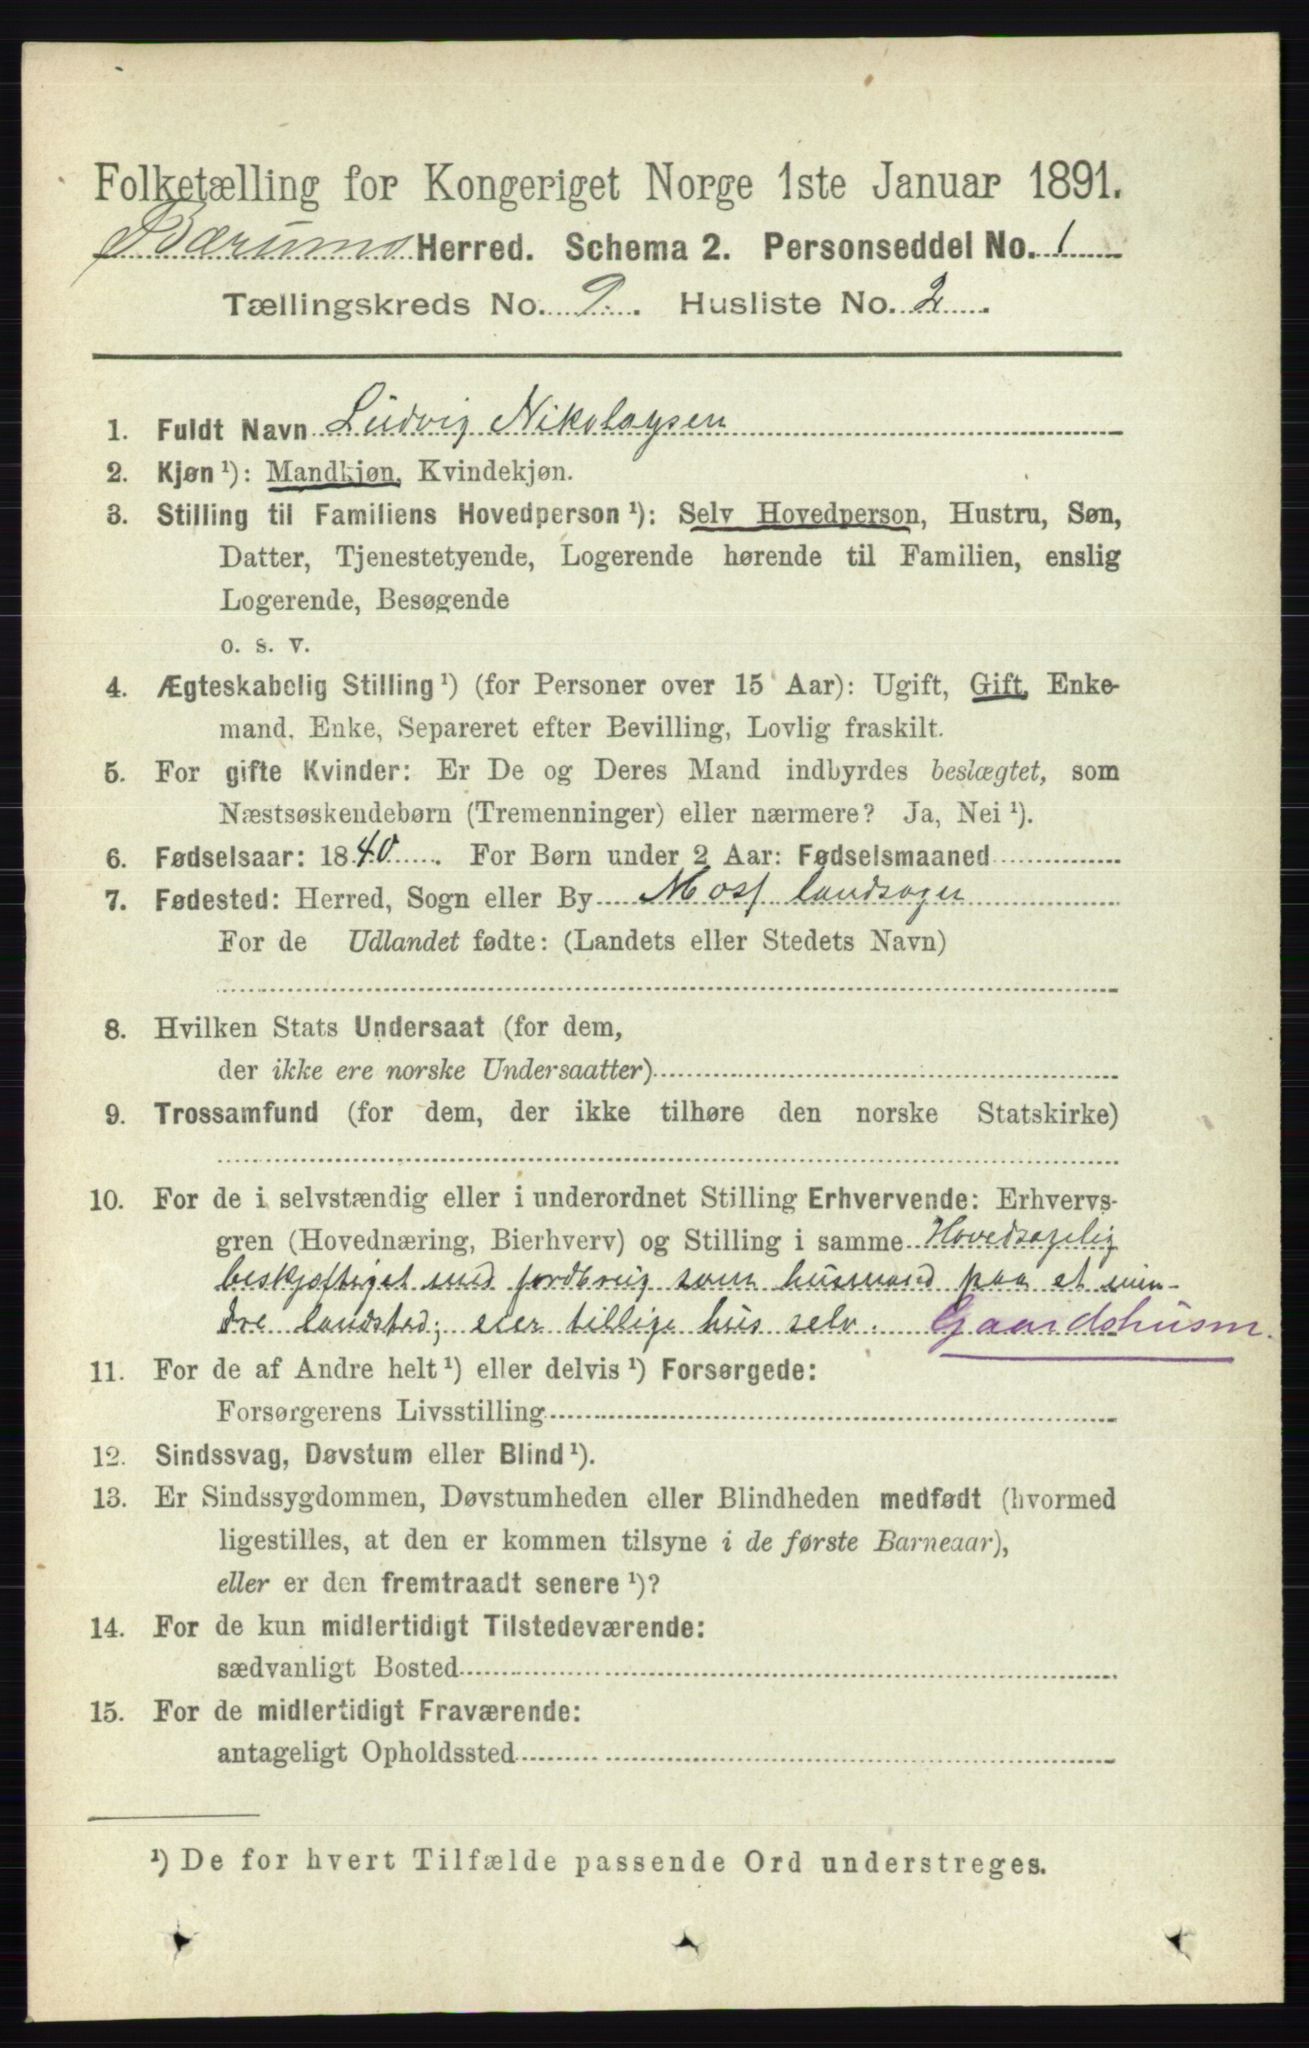 Folketælling for Kongeriget Norge 1ste Januar 1891.
Bærums Herred. Schema 2. Personseddel No. 1
Tællingskreds No. 9. Husliste No. 2
1. Fuldt Navn Ludvig Nikolaysen
2. Kjøn ¹): Mandkjøn, Kvindekjøn.
3. Stilling til Familiens Hovedperson ¹): Selv Hovedperson, Hustru, Søn,
Datter, Tjenestetyende, Logerende hørende til Familien, enslig
Logerende, Besøgende
o. s. v.
4. Ægteskabelig Stilling ¹) (for Personer over 15 Aar): Ugift, Gift, Enke-
mand, Enke, Separeret efter Bevilling, Lovlig fraskilt.
5. For gifte Kvinder: Er De og Deres Mand indbyrdes beslægtet, som
Næstsøskendebørn (Tremenninger) eller nærmere? Ja, Nei ¹).
6. Fødselsaar: 1840. For Børn under 2 Aar: Fødselsmaaned
7. Fødested: Herred, Sogn eller By Moss landsogn
For de Udlandet fødte: (Landets eller Stedets Navn)
8. Hvilken Stats Undersaat (for dem,
der ikke ere norske Undersaatter)
9. Trossamfund (for dem, der ikke tilhøre den norske Statskirke)
10. For de i selvstændig eller i underordnet Stilling Erhvervende: Erhvervs-
gren (Hovednæring, Bierhverv) og Stilling i samme Hovedsagelig
beskjæftiget med jordbrug som husmand paa et min-
dre landsted; eier tillige hus selv. Gaardshusm.
11. For de af Andre helt ¹) eller delvis ¹) Forsørgede:
Forsørgerens Livsstilling
12. Sindssvag, Døvstum eller Blind ¹).
13. Er Sindssygdommen, Døvstumheden eller Blindheden medfødt (hvormed
ligestilles, at den er kommen tilsyne i de første Barneaar),
eller er den fremtraadt senere ¹)?
14. For de kun midlertidigt Tilstedeværende:
sædvanligt Bosted
15. For de midlertidigt Fraværende:
antageligt Opholdssted
¹) De for hvert Tilfælde passende Ord understreges.